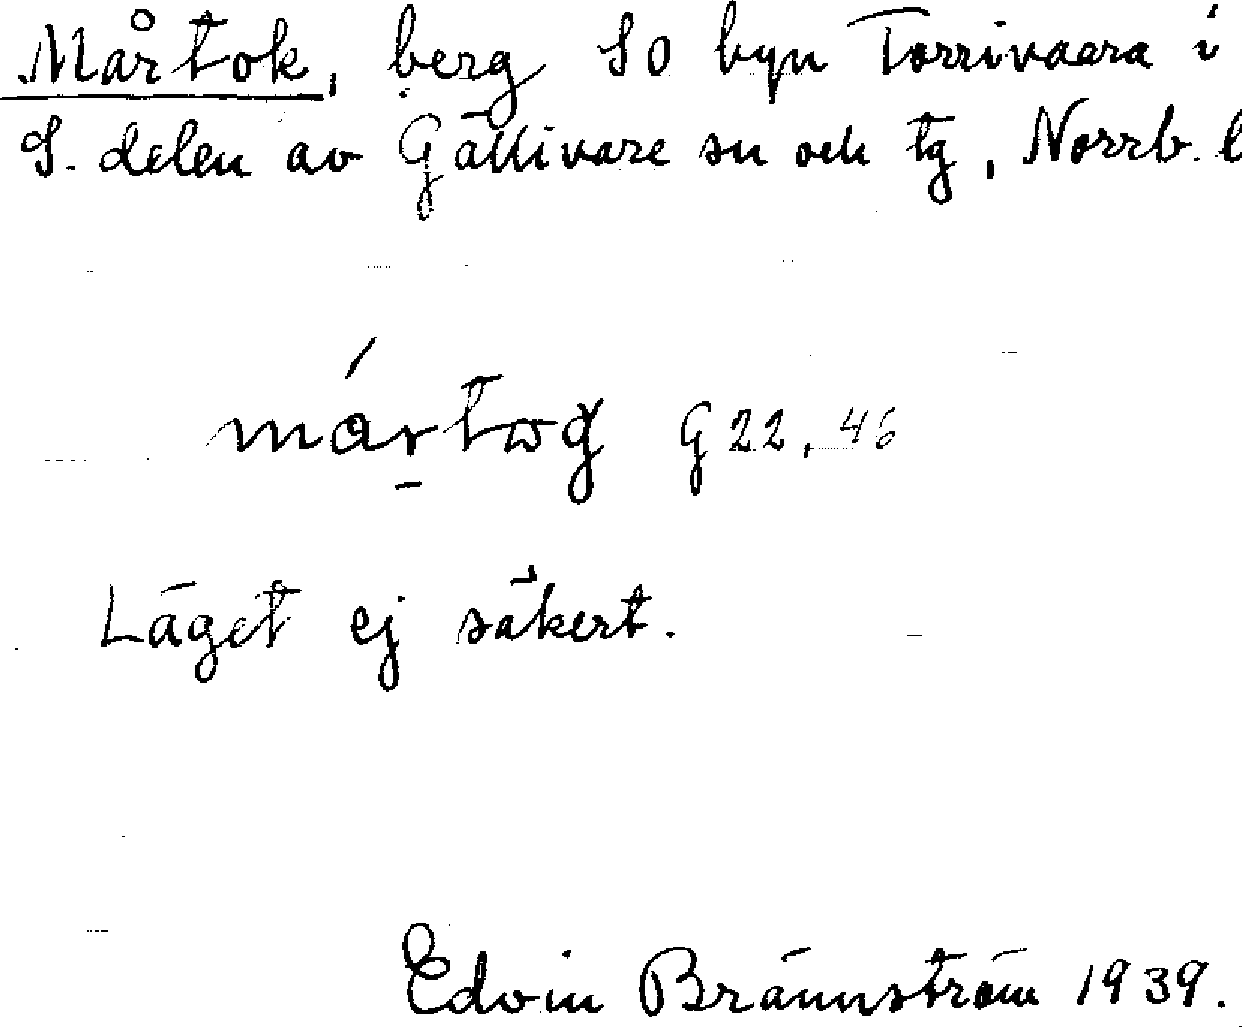 Mårtok, berg SO byn Torrivaara i
S. delen av Gällivare sn och tg, Norrb. l
mártog G 22, 46
Läget ej säkert.
Edvin Brännström 1939.